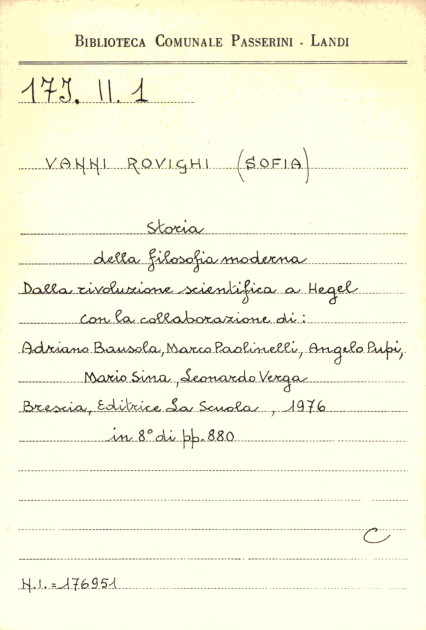 BIBLIOTECA COMUNALE PASSERINI - LANDI
17J. II. 1
VANNI ROVIGHI (SOFIA)
Storia
della filosofia moderna
Dalla rivoluzione scientifica a Hegel
con la collaborazione di:
Adriano Bausola, Marco Paolinelli, Angelo Pupi,
Mario Sina, Leonardo Verga
Brescia, Editrice La Scuola, 1976
in 8° di pp. 880
C
N.I. = 176951